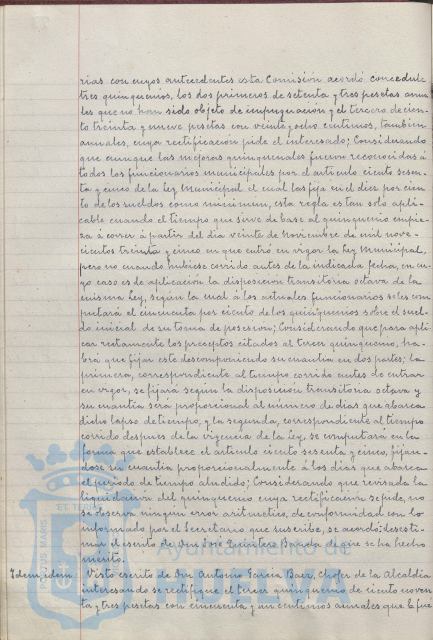 rias con cuyos antecedentes esta Comisión acordó concederle
tres quinquenios, los dos primeros de setenta y tres pesetas anua
les que no han sido objeto de impugnación y el tercero de cien
to treinta y nueve pesetas con veinte y ocho centimos, tambien
anuales, cuya rectificación pide el interesado; Considerando
que aunque las mejoras quinquenales fueron reconocidas á
todos los funcionarios municipales por el articulo ciento sesen
ta y cinco de la Ley Municipal el cual las fija en el diez por cien
to de los sueldos como minimum, esta regla es tan solo apli
cable cuando el tiempo que sirve de base al quinquenio empie
za á correr á partir del dia veinte de Noviembre de mil nove-
cientos treinta y cinco en que entró en vigor la Ley Municipal,
pero no cuando hubiese corrido antes de la indicada fecha, en cu
yo caso es de aplicación la disposición transitoria octava de la
misma Ley, según la cual á los actuales funcionarios se les com
putará el cincuenta por ciento de los quinquenios sobre el suel
do inicial de su toma de posesión; Considerando que para apli
car rectamente los preceptos citados al tercer quinquenio, ha-
brá que fijar este descomponiendo su cuantia en dos partes; la
primera, correspondiente al tiempo corrido antes de entrar
en vigor, se fijará según la disposición transitoria octava y
su cuantia será proporcional al número de dias que abarca
dicho lapso de tiempo, y la segunda, correspondiente al tiempo
corrido despues de la vigencia de la Ley, se computará en la
forma que establece el articulo ciento sesenta y cinco, fijan-
dose su cuantia proporcionalmente á los dias que abarca
el periodo de tiempo aludido; Considerando que revisada la
liquidación del quinquenio cuya rectificación se pide, no
se observa ningún error aritmetico, de conformidad con lo
informado por el Secretario que suscribe, se acordó desesti-
mar el escrito de Don José Quintero Banda de que se ha hecho
mérito.
Idem idem Visto escrito de Don Antonio Garcia Baez, chofer de la Alcaldia
interesando se rectifique el tercer quinquenio de ciento noven
ta y tres pesetas con cincuenta y un centimos anuales que le fue
Ayuntamiento de
HUELVA